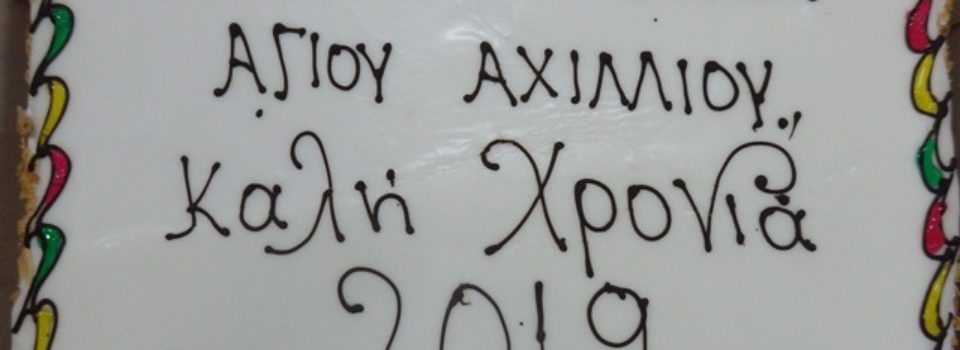 ΑΓΙΟΥ ΑΧΙΛΛΙΟΥ
Καλή Χρονιά
2019